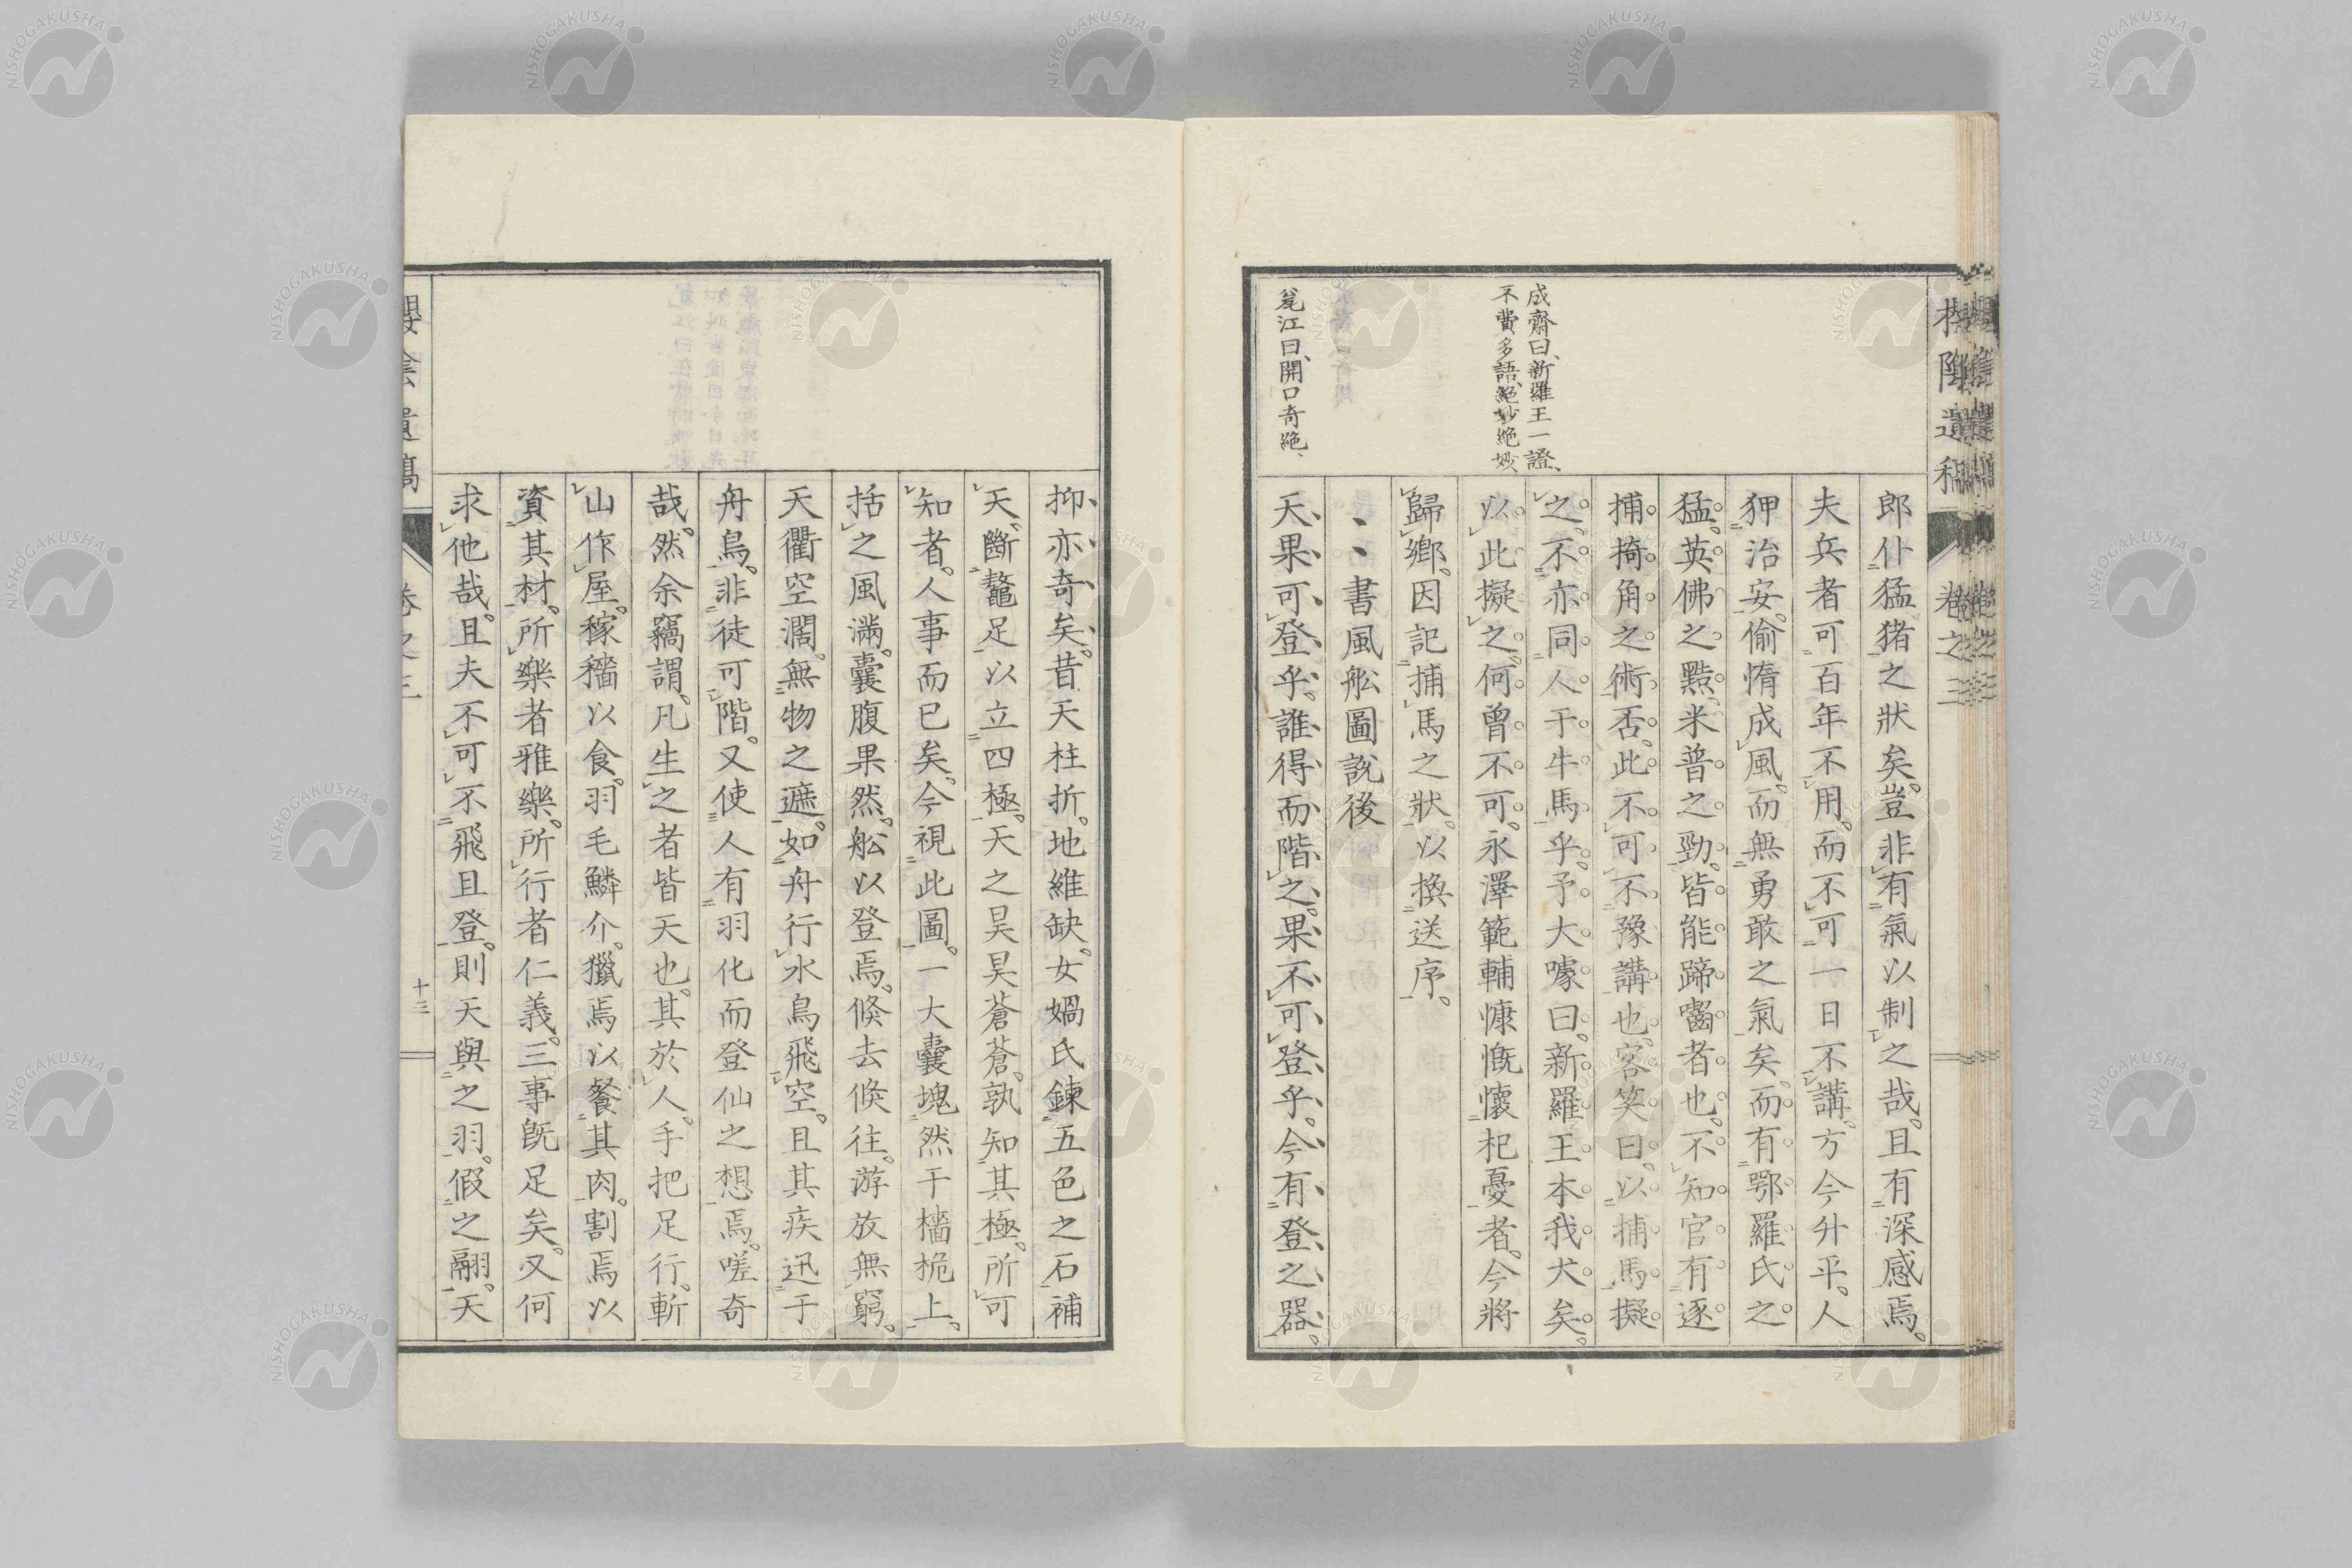 成齋曰、新羅王一證、
不費多語、絕妙絕妙、
瓮江曰、開口奇絕、
郎仆猛猪之狀矣。豈非有氣以制之哉。且有深感焉。
夫兵者可百年不用。而不可一日不講。方今升平。人
狎治安。偷惰成風。而無勇敢之氣矣。而有鄂羅氏之
猛。英佛之黠。米普之勁。皆能蹄囓者也。不知官有逐
捕掎角之術否。此不可不豫講也。客笑曰。以捕馬擬
之。不亦同人于牛馬乎。予大噱曰。新羅王本我犬矣。
以此擬之。何曾不可。永澤範輔慷慨懷杞憂者。今將
歸鄉。因記捕馬之狀。以換送序。
書風舩圖說後
天果可登乎。誰得而階之。果不可登乎。今有登之器。
抑亦奇矣。昔天柱折。地維缺。女媧氏鍊五色之石補
天。斷鼇足以立四極。天之昊昊蒼蒼。孰知其極。所可
知者。人事而已矣。今視此圖。一大囊塊然于檣桅上。
括之風滿。囊腹果然。舩以登焉。倏去倏往。游放無窮。
天衢空濶。無物之遮。如舟行水鳥飛空。且其疾迅于
舟鳥。非徒可階。又使人有羽化而登仙之想焉。嗟奇
哉。然余竊謂。凡生之者皆天也。其於人。手把足行。斬
山作屋。稼穡以食。羽毛鱗介。獵焉以餐其肉。割焉以
資其材。所樂者雅樂。所行者仁義。三事既足矣。又何
求他哉。且夫不可不飛且登。則天與之羽。假之翮。天
卷之三
十三